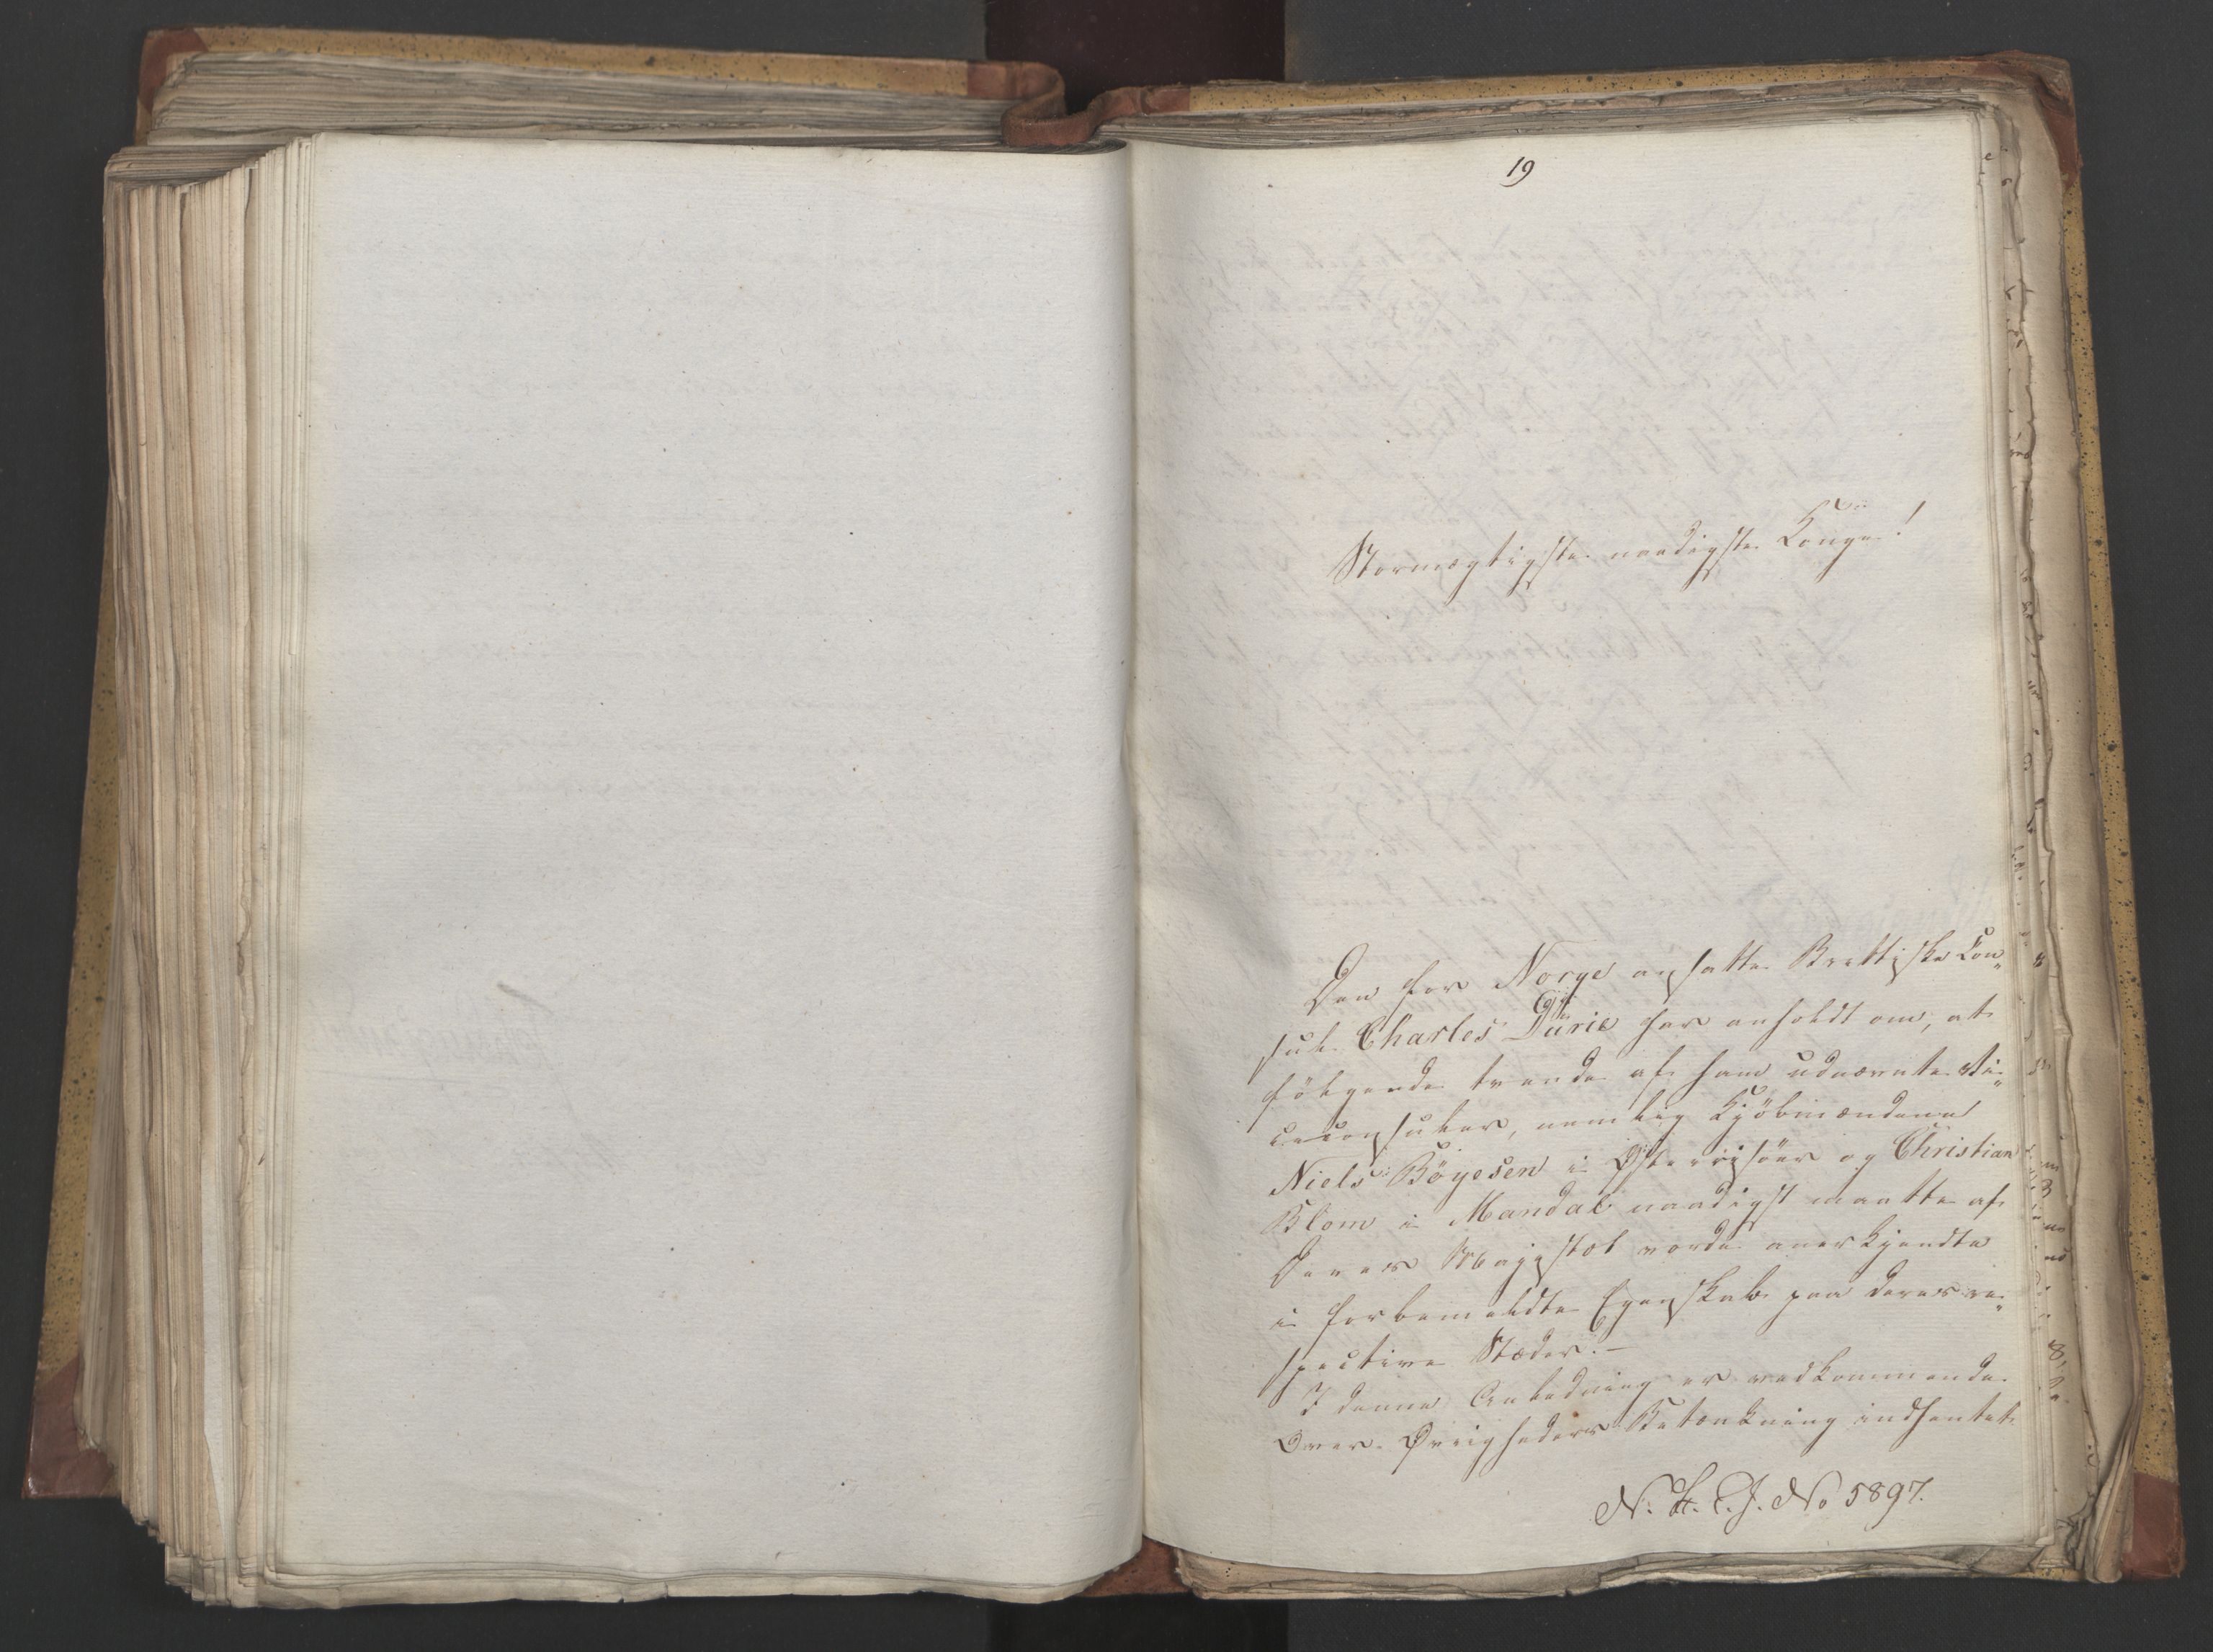 19
Stormægtigste naadigste Konge!
Den for Norge ansatte Brittiske Con„
sul Charles Dürie har anholdt om, at
følgende tvende af ham udnævnte Vi„
ceconsuler, nemlig Kjøbmændene
Niels Böyesen i Østeriisöer og Christian
Blom i Mandal naadigst maatte af
Deres Majestæt vorde anerkjendte
i forbemeldte Egenskab paa deres re„
spective Stæder.—
I denne Anledning er vedkommende
Over-Øvrigheders Betænkning indhentet
N. H. C. J. No 5897.